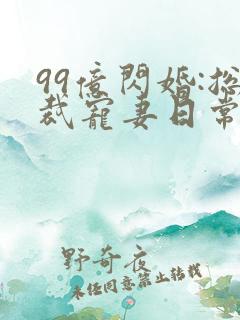 99億閃婚:総
裁寵妻日常
野奇夜
未经同意禁止转载